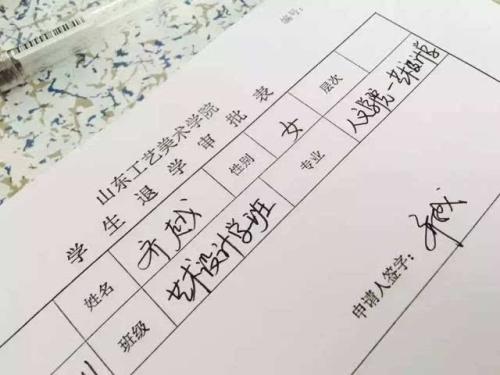 编号:
山东工艺美术学院
学生退学审批表
姓名 齐越 性别 女 层次
班级 艺术设计学班 专业 人文学院—艺术设计学
申请人签字: 齐越